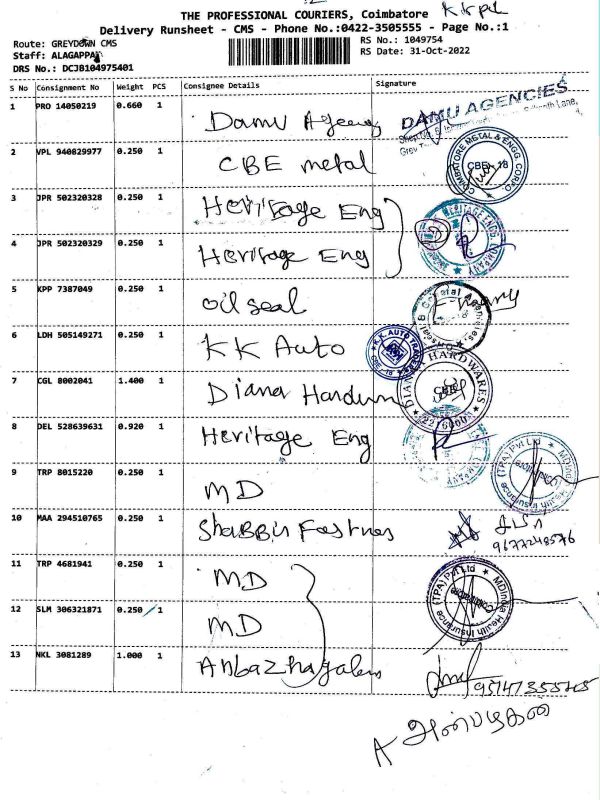 Kirpl
THE PROFESSIONAL COURIERS, Coimbatore
Delivery Runsheet - CMS - Phone No.:0422-3505555 - Page No.:1
Route: GREYDOWN CMS
RS No.: 1049754
Staff: ALAGAPPAN
RS Date: 31-Oct-2022
DRS No.: DCJB104975401
S No Consignment No Weight PCS Consignee Details Signature
1 PRO 14050219 0.660 1 Damu Agency DAMU AGENCIES
2 VPL 940829977 0.250 1 CBE metal COIMBATORE METAL & ENGG. CORPO. CBE - 18
3 JPR 502320328 0.250 1 Heritage Eng HERITAGE ENGG. COMPANY
4 JPR 502320329 0.250 1 Heritage Eng
5 KPP 7387049 0.250 1 oil seal
6 LDH 505149271 0.250 1 KK Auto K.K. AUTO TRADERS
7 CGL 8002041 1.400 1 Diana Hardwa DIANA HARDWARES
8 DEL 528639631 0.920 1 Heritage Eng COMPANY
9 TRP 8015220 0.250 1 MD MDIndia Health Insurance (TPA) Pvt Ltd Coimbatore
10 MAA 294510765 0.250 1 Shabbir Fastnes 9677248576
11 TRP 4681941 0.250 1 MD MDIndia Health Insurance (TPA) Pvt Ltd Coimbatore
12 SLM 306321871 0.250 1 MD
13 NKL 3081289 1.000 1 Anbazhagalen
A அன்பழகன்